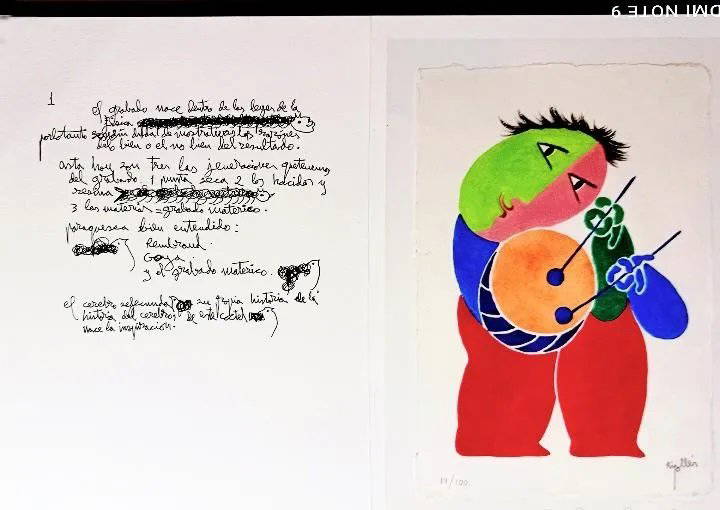 1
el grabado nace dentro de las leyes de la
fisica
por lo tanto dificil de mostrar las razones
del bien o el no bien del resultado.
asta hoy son tres las jeneraciones que tenemos
del grabado 1 punta seca 2 los hacidos y
resina
3 las materias = grabado materico.
para que sea bien entendido:
Rembrand.
Goya
y el grabado materico.
el cerebro su propia historia de la
historia del cerebro, de este
nace la inspiracion.
17/100
REDMI NOTE 9